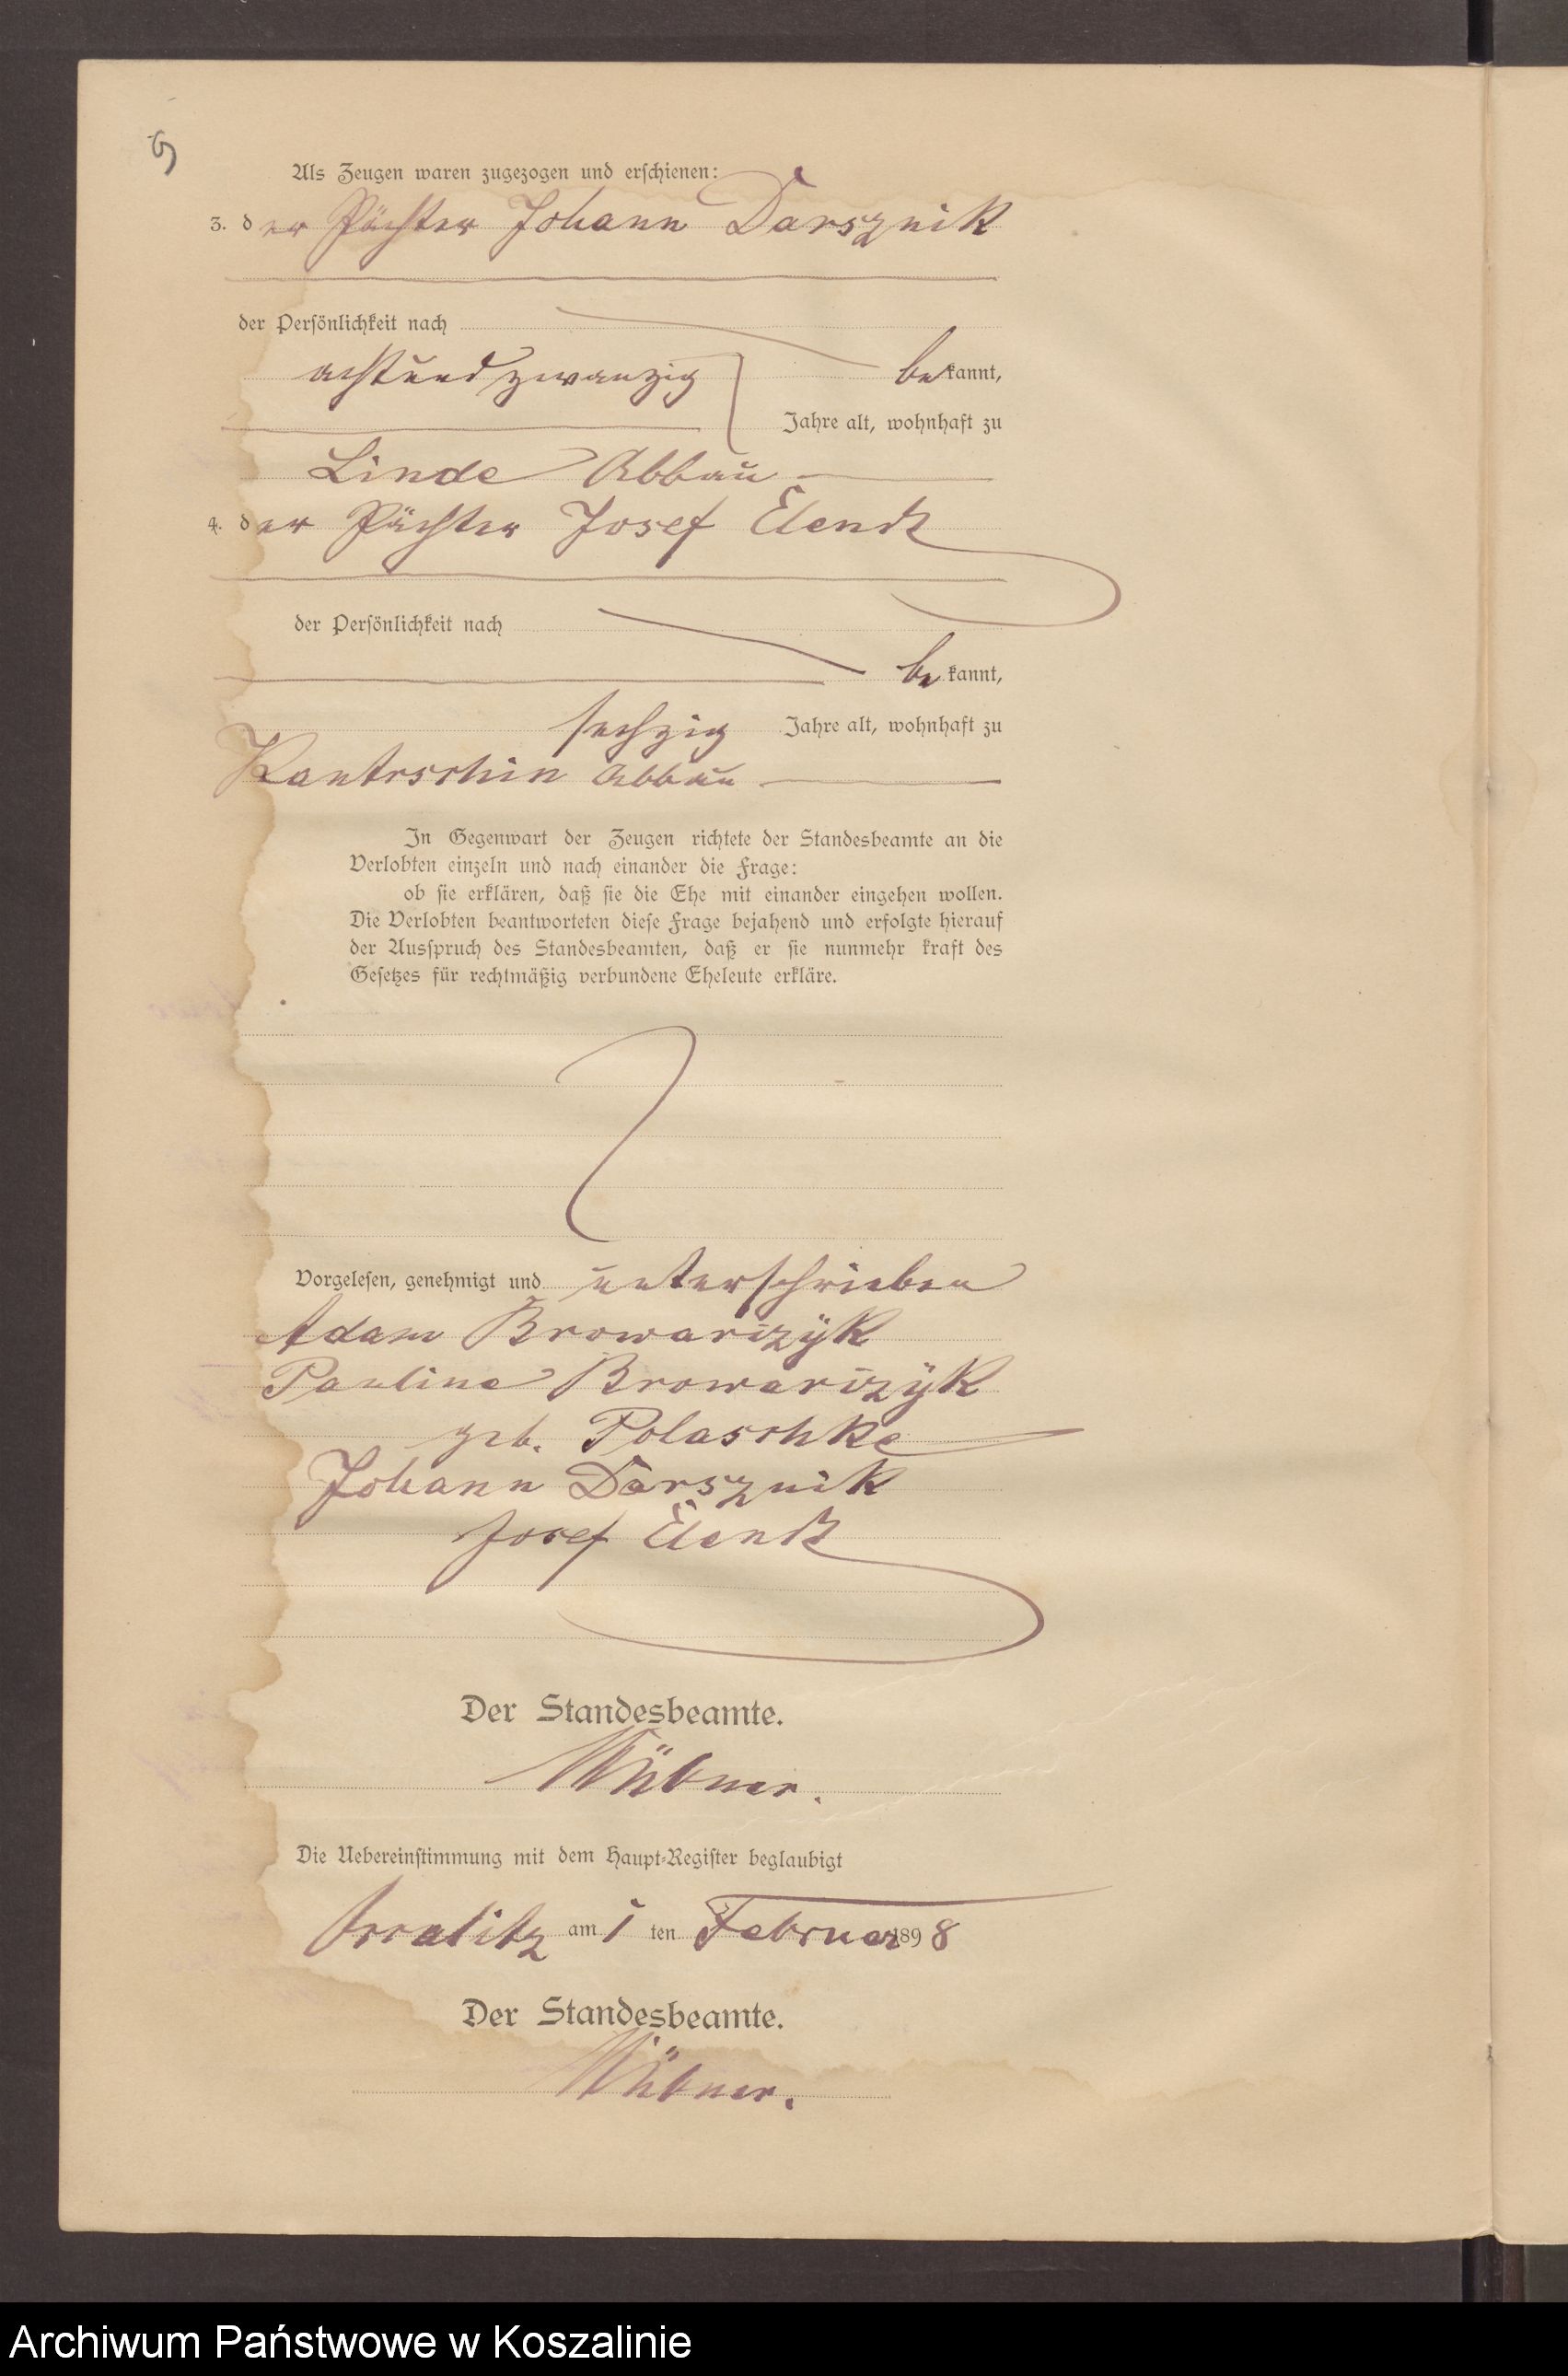 Als Zeugen waren zugezogen und erschienen:
3. der Pächter Johann Darsznik
der Persönlichkeit nach
bekannt,
achtundzwanzig
Jahre alt, wohnhaft zu
Linde Abbau
4. der Pächter Josef Elendt
der Persönlichkeit nach
bekannt,
sechzig Jahre alt, wohnhaft zu
Kantrschin Abbau
In Gegenwart der Zeugen richtete der Standesbeamte an die
Verlobten einzeln und nach einander die Frage:
ob sie erklären, daß sie die Ehe mit einander eingehen wollen.
Die Verlobten beantworteten diese Frage bejahend und erfolgte hierauf
der Ausspruch des Standesbeamten, daß er sie nunmehr kraft des
Gesetzes für rechtmäßig verbundene Eheleute erkläre.
Vorgelesen, genehmigt und unterschrieben
Adam Browarizÿk
Pauline Browarizÿk
geb. Polaschke
Johann Darsznik
Josef Elendt
Der Standesbeamte.
Die Uebereinstimmung mit dem Haupt-Register beglaubigt
am 1 ten Februar 1898
Der Standesbeamte.
Archiwum Państwowe w Koszalinie